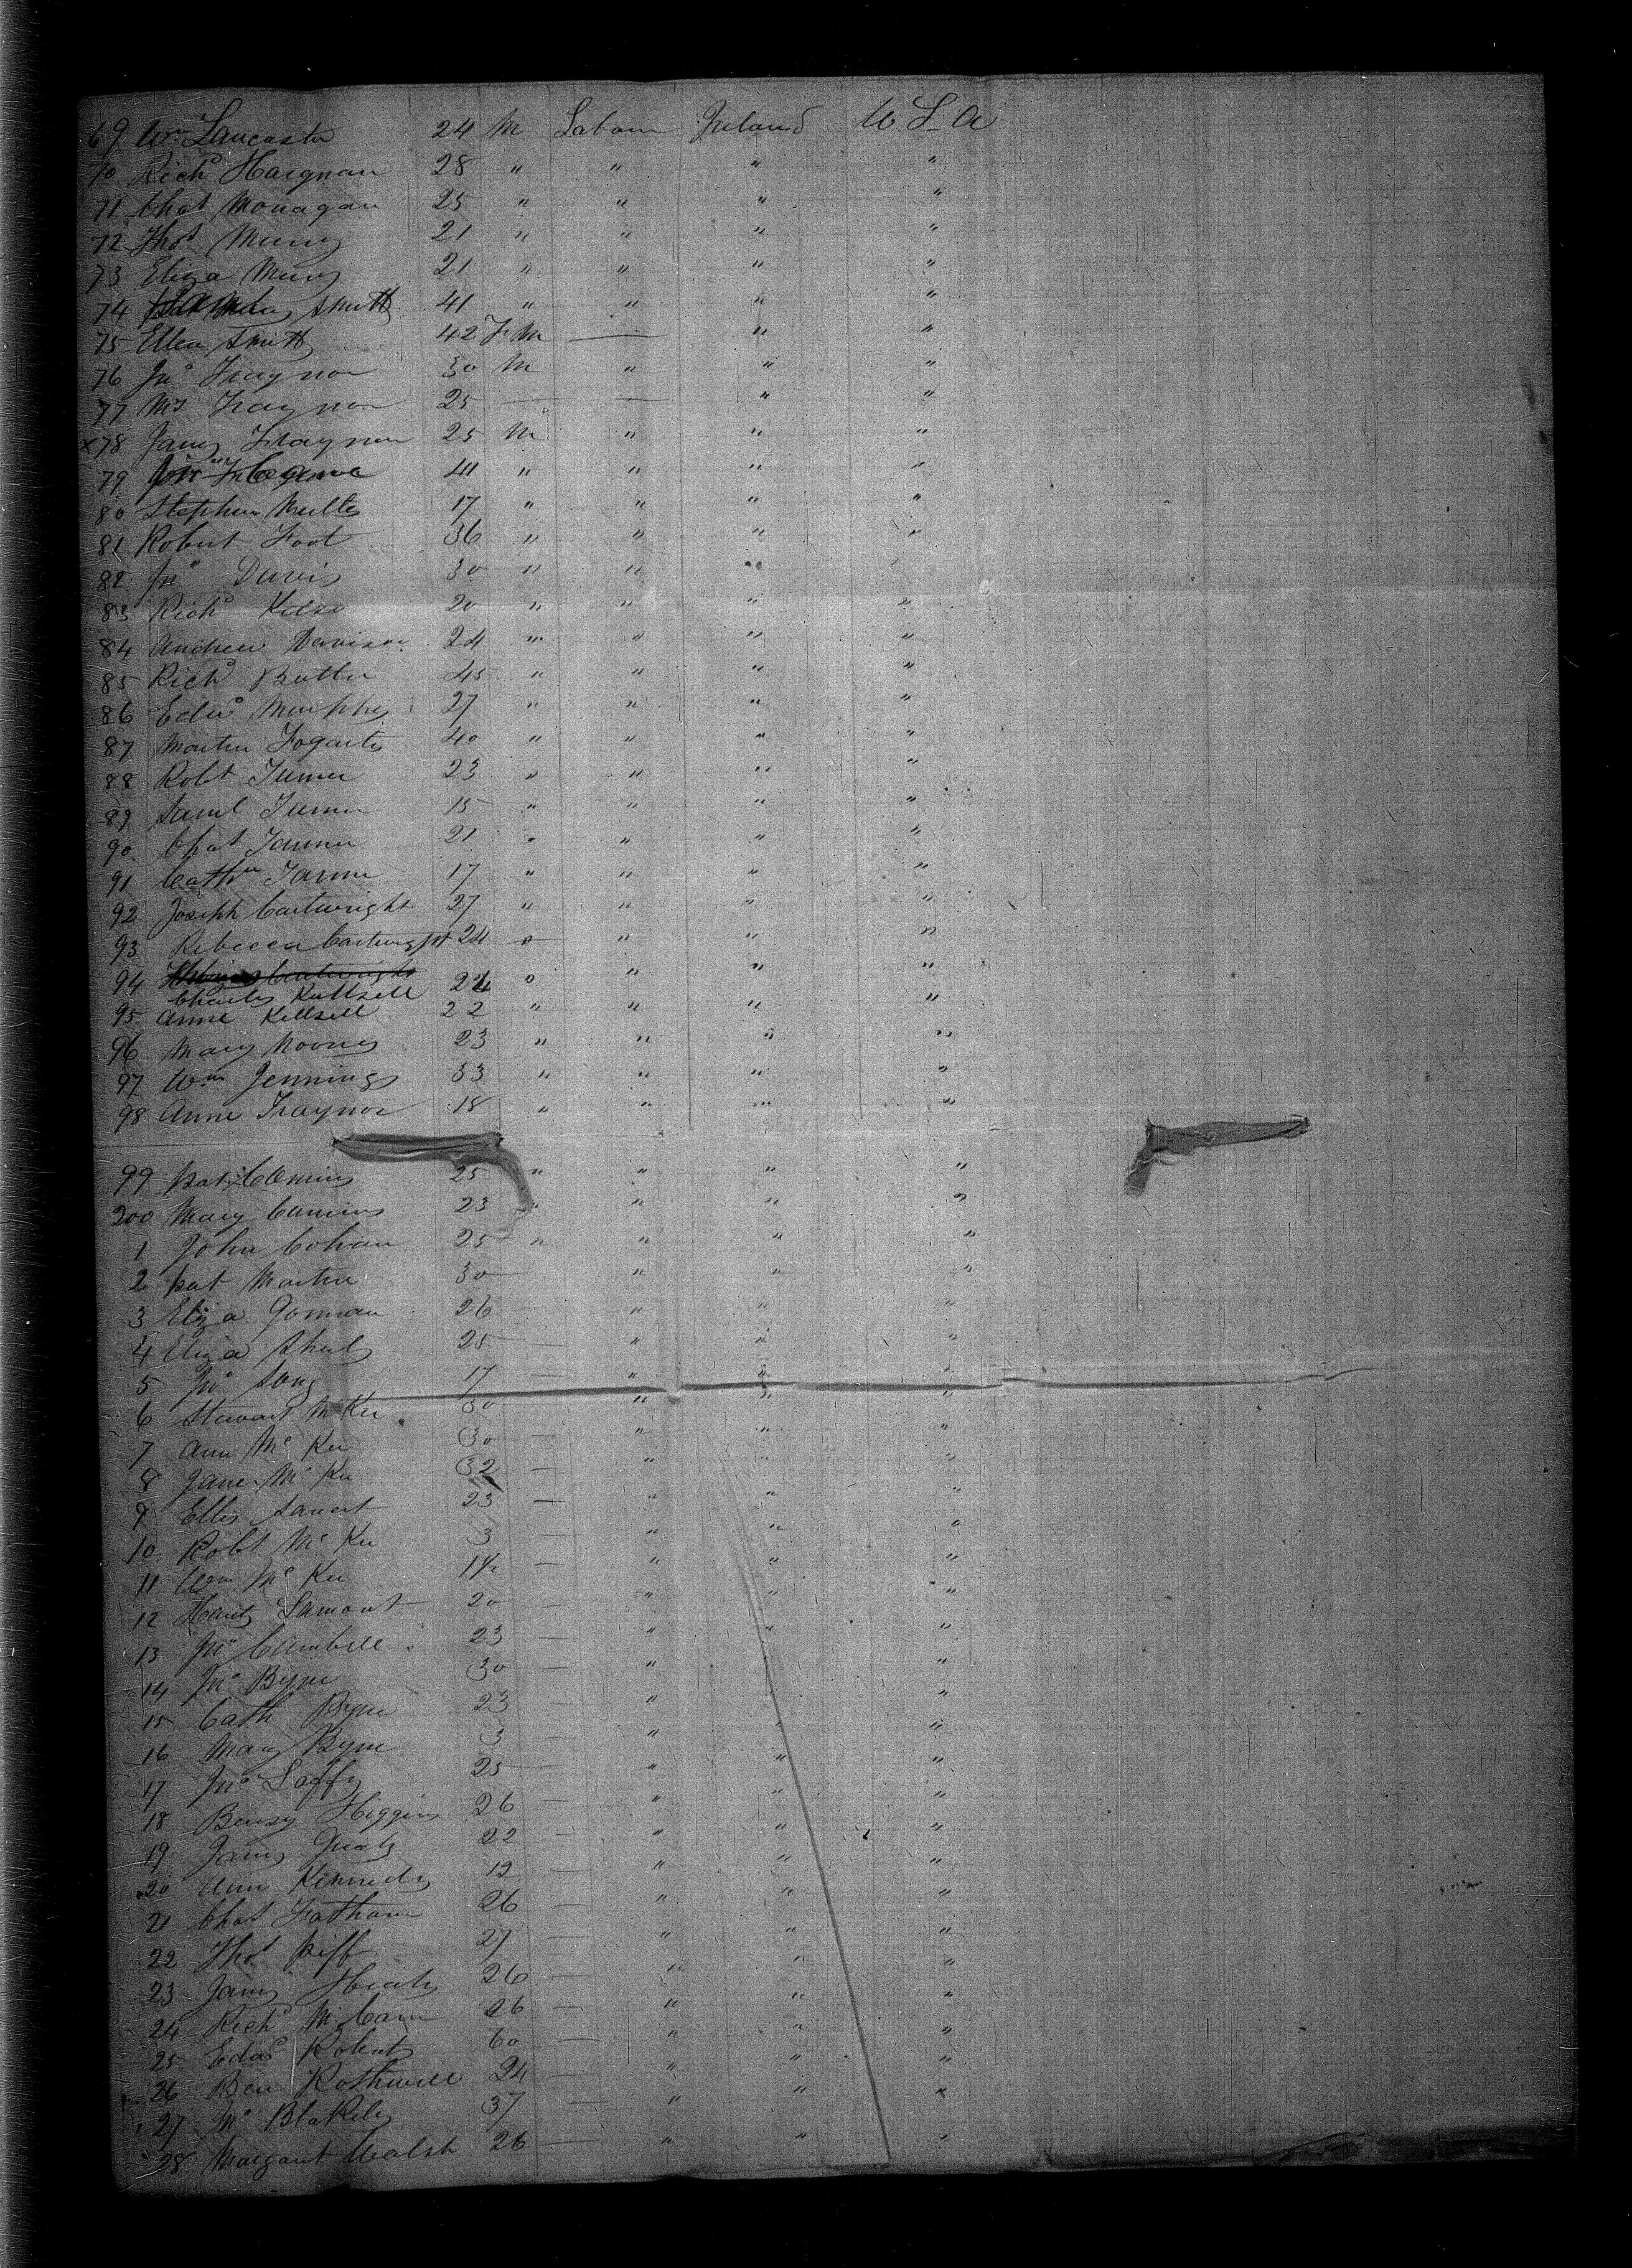 69 Wm Lancaster 24 M Labour Ireland U S A
70 Richd Haegnan 28 " " " "
71 Chas Monagan 25 " " " "
72 Thos Murry 21 " " " "
73 Eliza Murry 21 " " " "
74 Smith 41 " " " "
75 Ellen Smith 42 F M — " "
76 Jno Traynor 30 M " " "
77 Ms Traynor 25 — — " "
x78 James Traynor 25 M " " "
79 41 " " " "
80 Stephen 17 " " " "
81 Robert Foot 36 " " " "
82 Jno Davis 30 " " " "
83 Richd Kelso 20 " " " "
84 Andrew Davison 24 " " " "
85 Richd Butler 45 " " " "
86 Edwd Murphy 27 " " " "
87 Martin Fogarty 40 " " " "
88 Robt Turner 23 " " " "
89 Saml Turner 15 " " " "
90 Chas Turner 21 " " " "
91 Cathn Turner 17 " " " "
92 Joseph Cartwright 27 " " " "
93 Rebecca Cartwright 24 " " "
94 Cartwright 24 " " "
Charles Kellsell
95 Anne Kellsell 22 " " " "
96 Mary Mooney 23 " " " "
97 Wm Jennings 33 " " " "
98 Anne Traynor 18 " " " "
99 Pat Comins 25 " " " "
200 Mary Camins 23 " " " "
1 John Cohan 25 " " " "
2 Pat Martin 30 — " " "
3 Eliza Gorman 26 — " " "
4 Eliza 25 — " " "
5 Jno 17 — " " "
6 Stewart McKee 30 " " "
7 Ann McKee 30 — " " "
8 Jane McKee 32 — " "
9 Ellis 23 — " " "
10 Robt McKee 3 — " " "
11 Wm McKee 1½ — " " "
12 Lamont 20 — " " "
13 Jno Cambell 23 — " " "
14 Jno Byrne 30 — " "
15 Cath Byrne 23 " "
16 Mary Byrne 3 — " " "
17 Jno Laffy 25 — " " "
18 Higgins 26 — " " "
19 James 22 — " " "
20 Ann Kennedy 19 — " " "
21 Chas 26 — " " "
22 Thos 27 — " " "
23 James 26 — " " "
24 Richd McCann 26 — " " "
25 Edwd Roberts 60 — " " "
26 Ben Rothwell 24 — " " "
27 Blakely 37 " " "
28 Margaret Walsh 26 — " " "